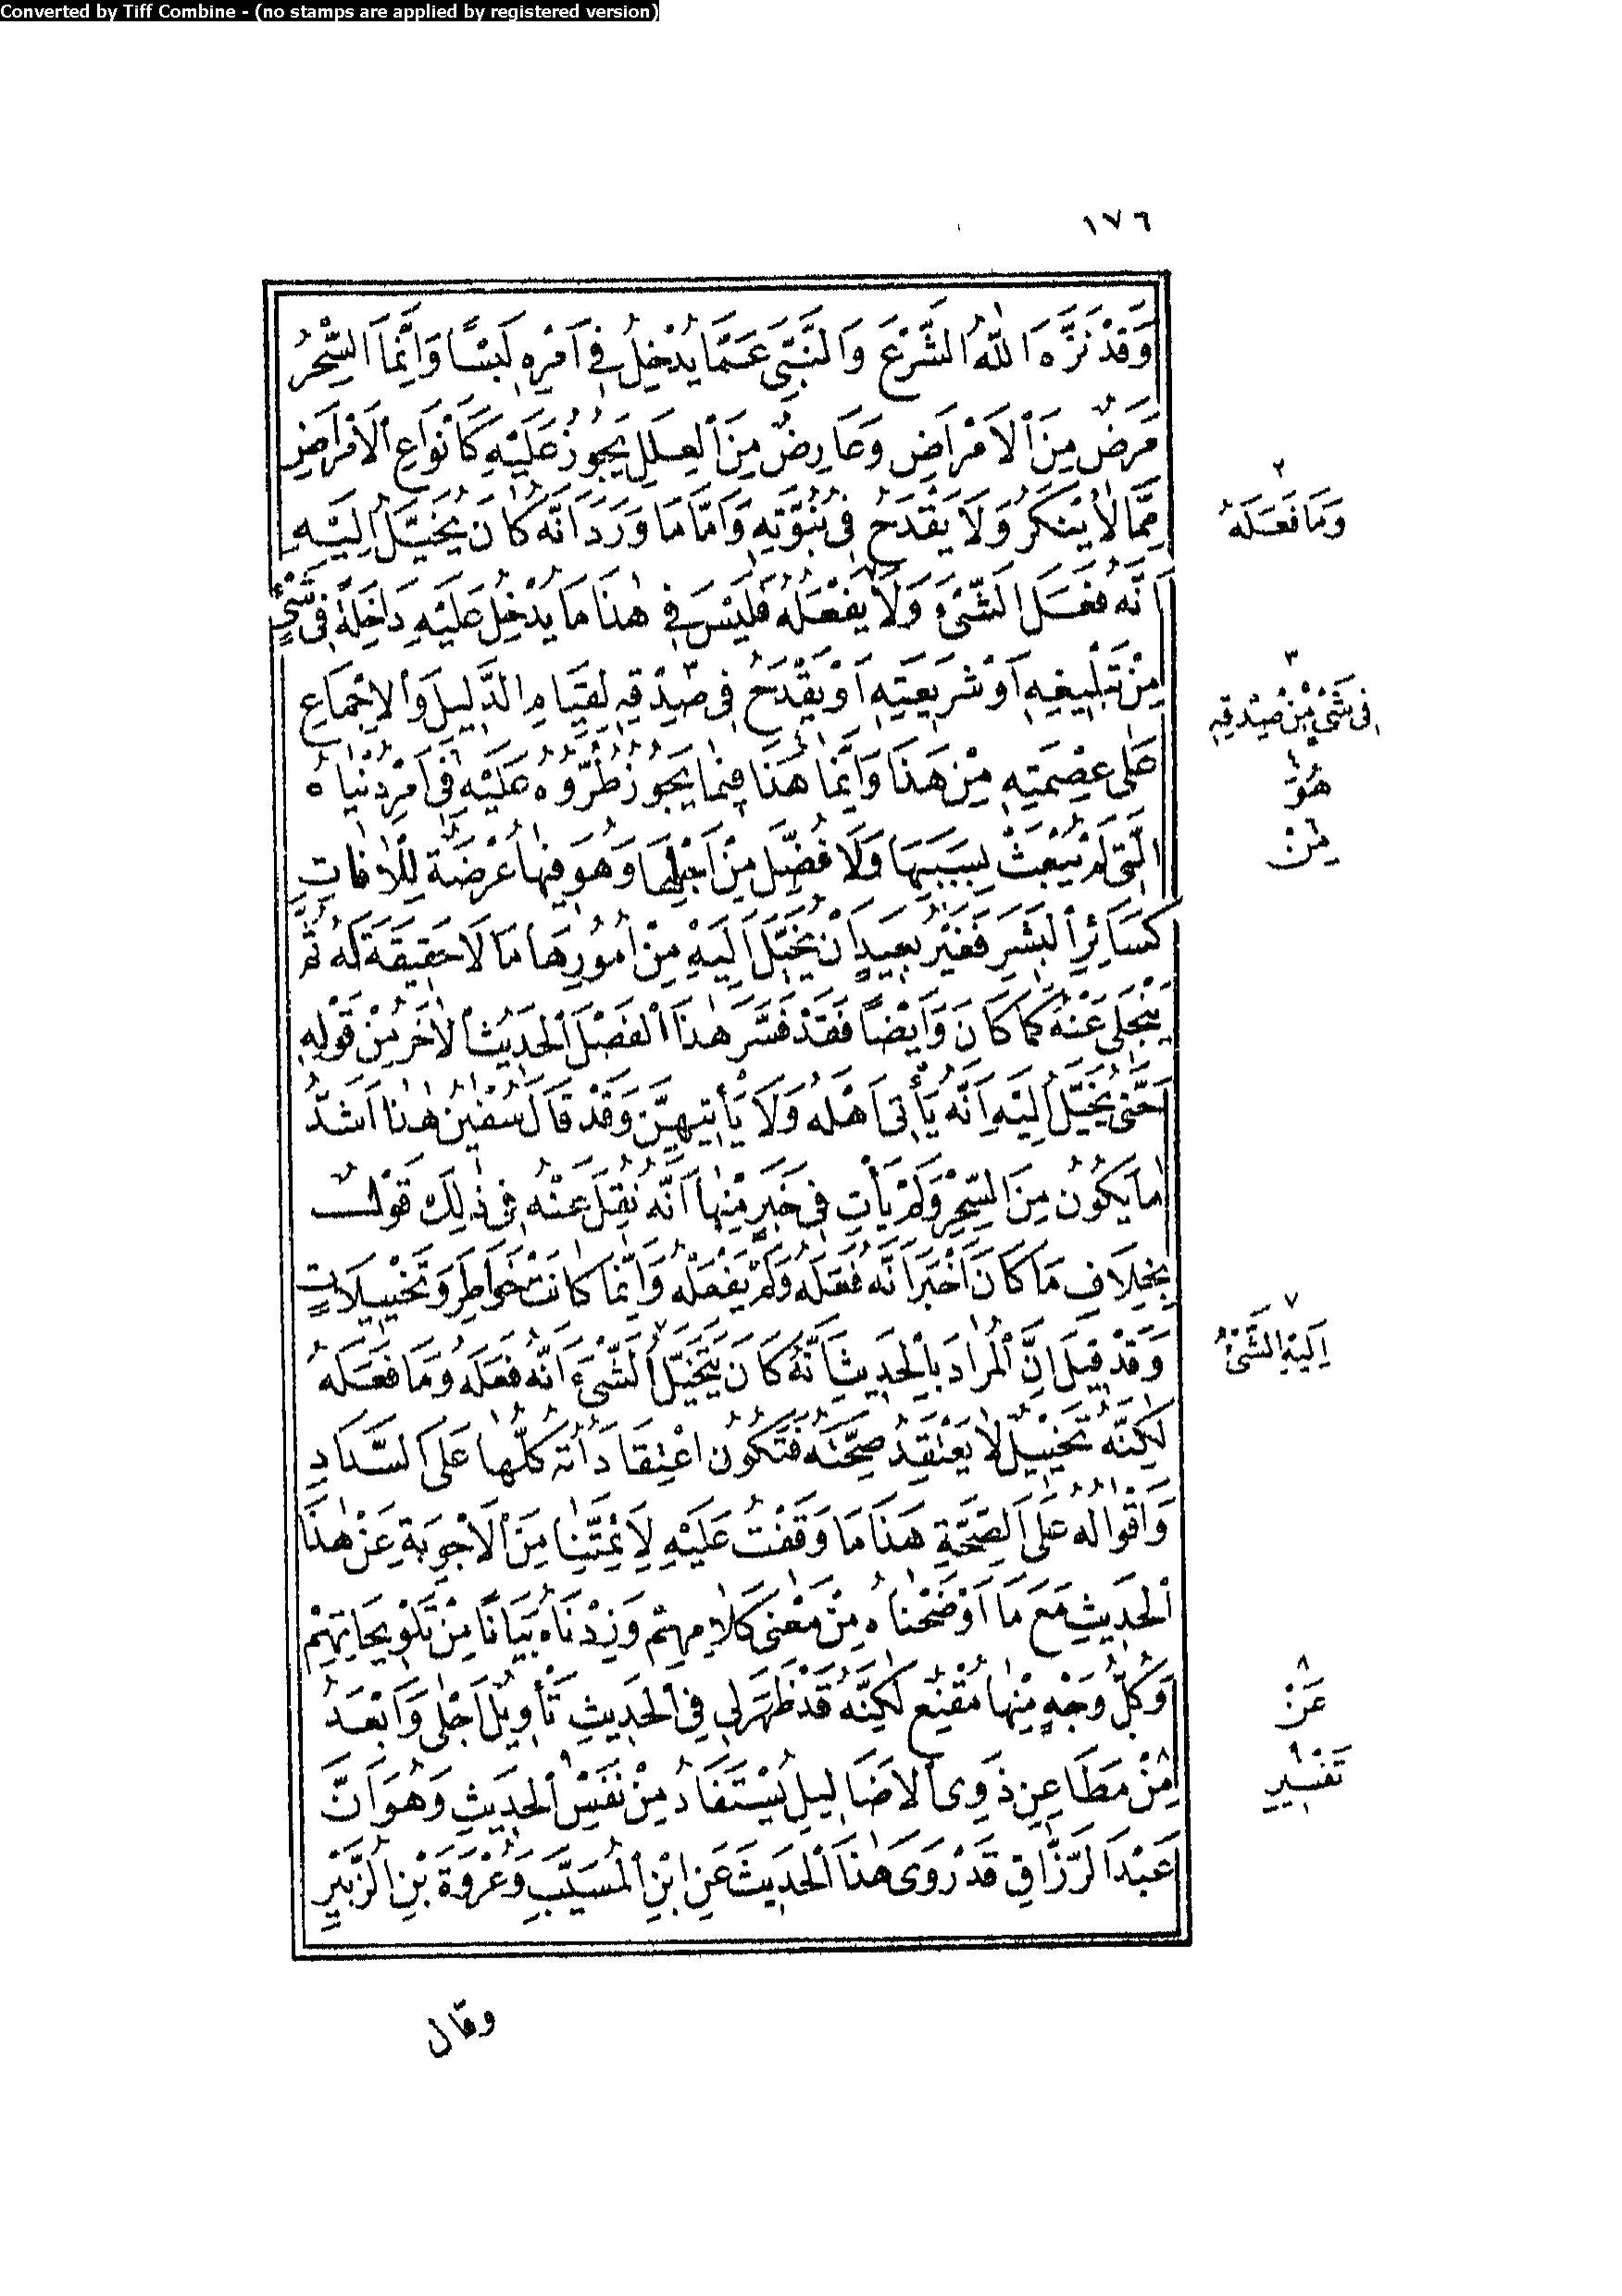 Converted by Tiff Combine - (no stamps are applied by registered version)
١٧٦
وَقَدْ نَزَّهَ اللّٰهُ الشَّرْعَ وَالنَّبِيَّ عَمَّا يُدْخِلُ فِي اَمْرِهِ لَبْسًا وَاِنَّمَا السِّحْرُ
مَرَضٌ مِنَ الْاَمْرَاضِ وَعَارِضٌ مِنَ الْعِلَلِ يَجُوزُ عَلَيْهِ كَاَنْوَاعِ الْاَمْرَاضِ
مِمَّا لَا يُنْكَرُ وَلَا يَقْدَحُ فِي نُبُوَّتِهِ وَاَمَّا مَا وَرَدَ اَنَّهُ كَانَ يُخَيَّلُ اِلَيْهِ
اَنَّهُ فَعَلَ الشَّيْءَ وَلَا يَفْعَلُهُ ٢ فَلَيْسَ فِي هٰذَا مَا يُدْخِلُ عَلَيْهِ دَاخِلَةً فِي شَيْءٍ
مِنْ تَبْلِيغِهِ اَوْ شَرِيعَتِهِ اَوْ يَقْدَحُ فِي ٣ صِدْقِهِ لِقِيَامِ الدَّلِيلِ وَالْاِجْمَاعِ
عَلٰى عِصْمَتِهِ مِنْ هٰذَا وَاِنَّمَا هٰذَا فِيمَا يَجُوزُ طُرُوُّهُ عَلَيْهِ فِي اَمْرِ دُنْيَاهُ
الَّتِي لَمْ يُبْعَثْ بِسَبَبِهَا وَلَا فُضِّلَ مِنْ اَجْلِهَا وَهُوَ فِيهَا عُرْضَةٌ لِلْاٰفَاتِ
كَسَائِرِ الْبَشَرِ فَغَيْرُ بَعِيدٍ اَنْ يُخَيَّلَ اِلَيْهِ مِنْ اُمُورِهَا مَا لَا حَقِيقَةَ لَهُ ثُمَّ
يَنْجَلِي عَنْهُ كَمَا كَانَ وَاَيْضًا فَقَدْ فَسَّرَ هٰذَا الْفَصْلَ الْحَدِيثُ الْاٰخَرُ مِنْ قَوْلِهِ
حَتّٰى يُخَيَّلَ اِلَيْهِ اَنَّهُ يَأْتِي اَهْلَهُ وَلَا يَأْتِيهِنَّ وَقَدْ قَالَ سُفْيٰنُ هٰذَا اَشَدُّ
مَا يَكُونُ مِنَ السِّحْرِ وَلَمْ يَأْتِ فِي خَبَرٍ مِنْهَا اَنَّهُ نُقِلَ عَنْهُ فِي ذٰلِكَ قَوْلٌ
بِخِلَافِ مَا كَانَ اَخْبَرَ اَنَّهُ فَعَلَهُ وَلَمْ يَفْعَلْهُ وَاِنَّمَا كَانَتْ خَوَاطِرَ وَتَخْيِيلَاتٍ
وَقَدْ قِيلَ اِنَّ الْمُرَادَ بِالْحَدِيثِ اَنَّهُ كَانَ يَتَخَيَّلُ ٧ الشَّيْءَ اَنَّهُ فَعَلَهُ وَمَا فَعَلَهُ
لٰكِنَّهُ تَخْيِيلٌ لَا يَعْتَقِدُ صِحَّتَهُ فَتَكُونُ اعْتِقَادَاتُهُ كُلُّهَا عَلَى السَّدَادِ
وَاَقْوَالُهُ عَلَى الصِّحَّةِ هٰذَا مَا وَقَفْتُ عَلَيْهِ لِاَئِمَّتِنَا مِنَ الْاَجْوِبَةِ عَنْ هٰذَا
الْحَدِيثِ مَعَ مَا اَوْضَحْنَاهُ مِنْ مَعْنٰى كَلَامِهِمْ وَزِدْنَاهُ بَيَانًا مِنْ تَلْوِيحَاتِهِمْ
وَكُلُّ وَجْهٍ مِنْهَا مُقْنِعٌ لٰكِنَّهُ قَدْ ظَهَرَ لِي فِي الْحَدِيثِ تَأْوِيلٌ اَجْلٰى وَاَبْعَدُ
مِنْ ٨ مَطَاعِنِ ذَوِي الْاَضَالِيلِ يُسْتَفَادُ مِنْ نَفْسِ ٩ الْحَدِيثِ وَهُوَ اَنَّ
عَبْدَ الرَّزَّاقِ قَدْ رَوٰى هٰذَا الْحَدِيثَ عَنِ ابْنِ الْمُسَيَّبِ وَعُرْوَةَ بْنِ الزُّبَيْرِ
٢
وَمَا فَعَلَهُ
٣
فِي شَيْءٍ مِنْ صِدْقِهِ
هُوَ
مِنْ
٧
اِلَيْهِ الشَّيْءُ
٨
عَنْ
٩
تَفْسِيرِ
وقال